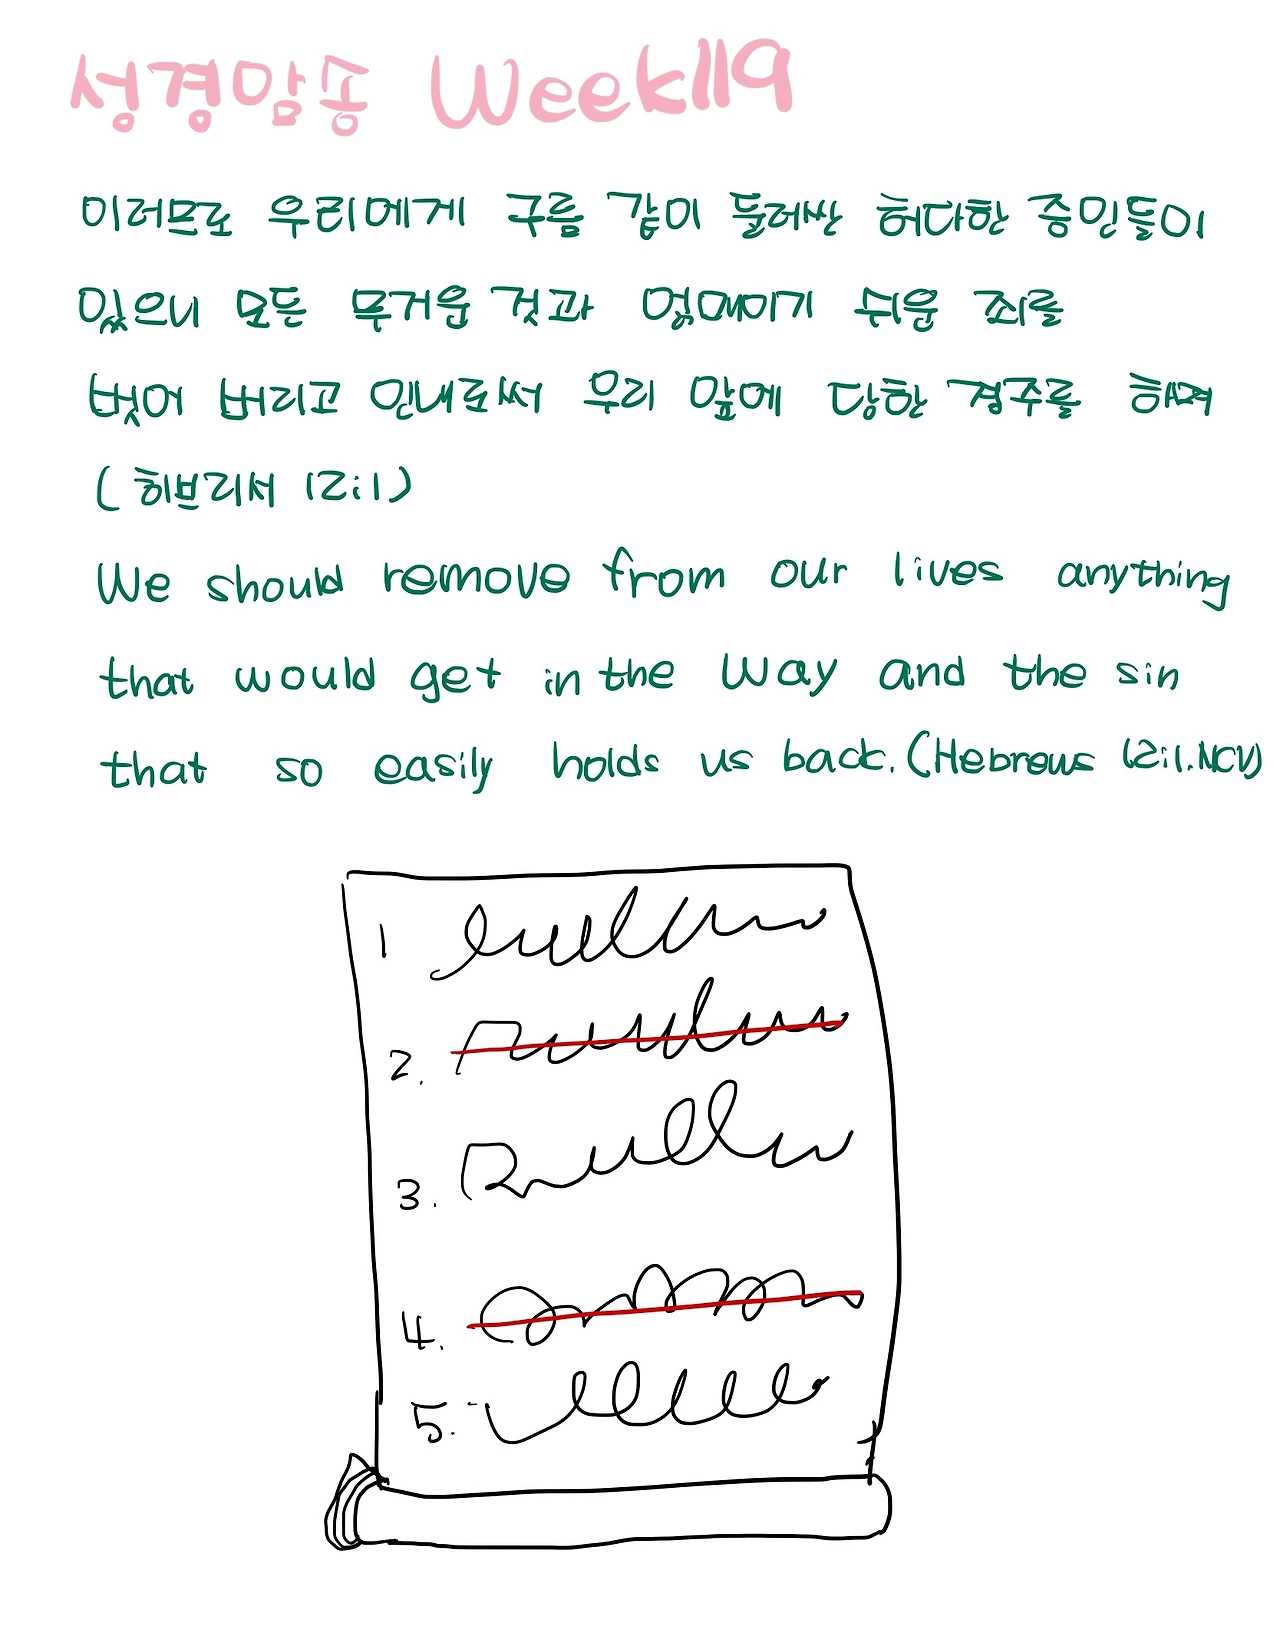 성경암송 Week119
이러므로 우리에게 구름 같이 둘러싼 허다한 증인들이
있으니 모든 무거운 것과 얽매이기 쉬운 죄를
벗어 버리고 인내로써 우리 앞에 당한 경주를 하며
(히브리서 12:1)
We should remove from our lives anything
that would get in the way and the sin
that so easily holds us back. (Hebrews 12:1.NCV)
1
2.
3.
4.
5.